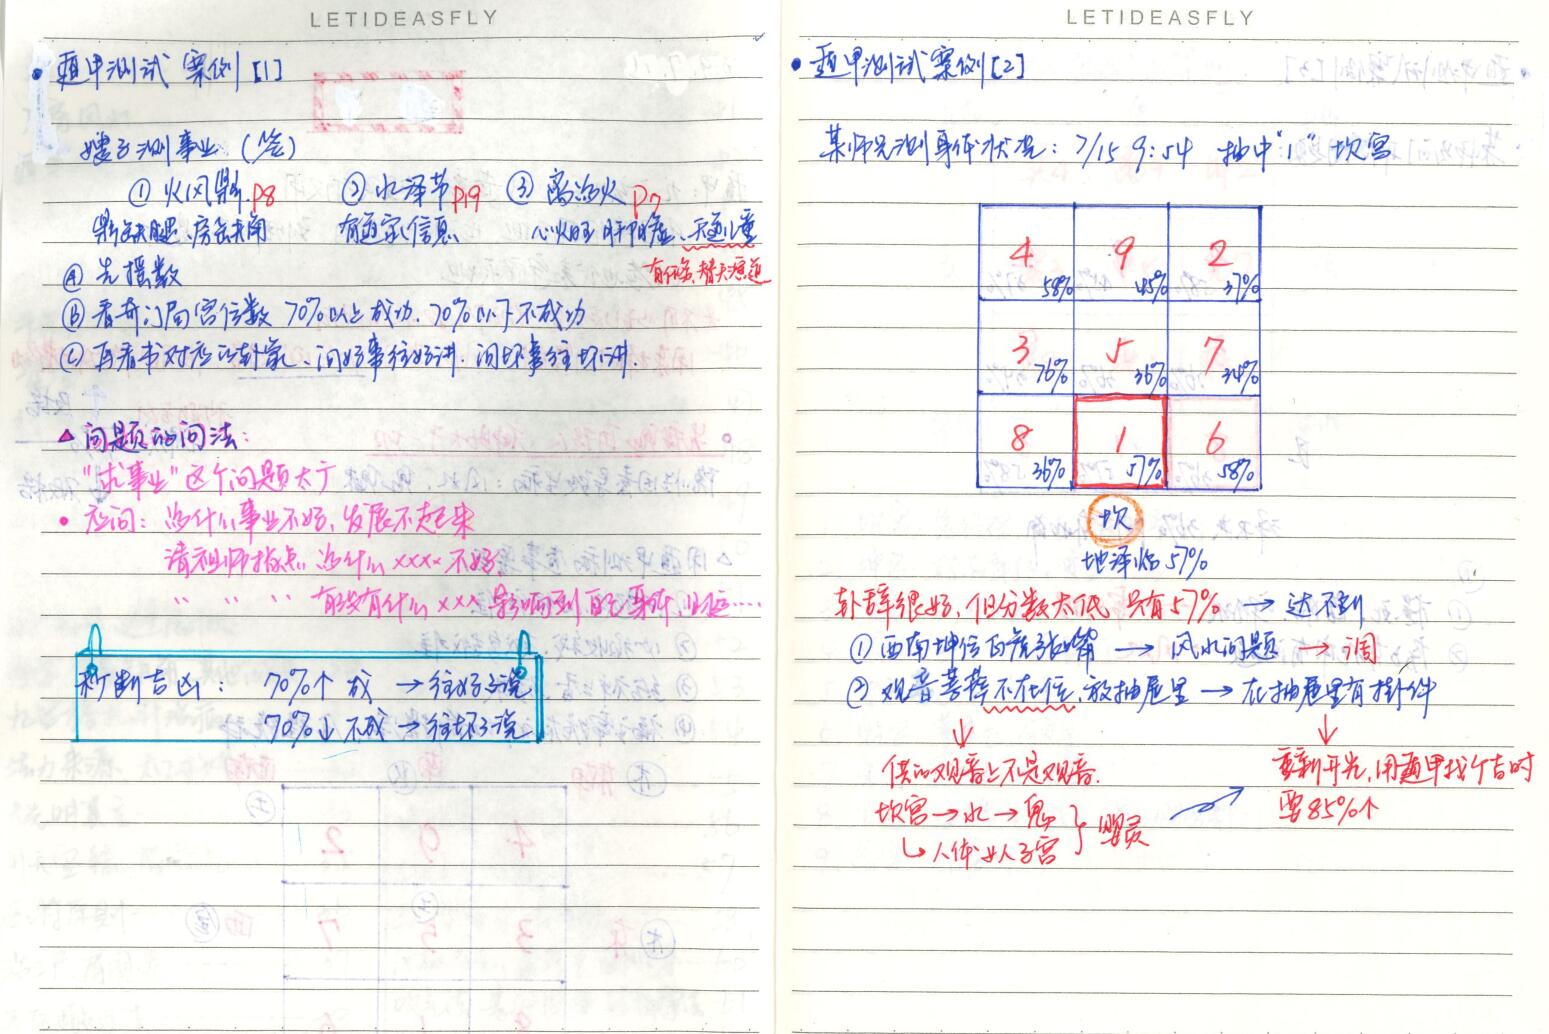 LETIDEASFLY
• 遁甲测试 案例 [1]
嫂子测事业 (签)
① 火风鼎 P8 ② 水泽节 P19 ③ 离为火 P7
鼎缺腿、房缺角 有道家信息 心火旺 肝阳虚、天通儿童
有任务、替天应运
Ⓐ 先摇数
Ⓑ 看奇门局宫位数 70%以上成功、70%以下不成功
Ⓒ 再看书对应的卦象、问好事往好讲、问坏事往坏讲.
△ 问题的问法:
"求事业"这个问题太广
• 应问: 为什么事业不好, 发展不起来
请祖师指点 为什么 xxxx 不好
〃 〃 〃 有没有什么 xxx 影响到自己身体, 业运....
秒断吉凶: 70%↑ 成 → 往好了说
70%↓ 不成 → 往坏了说
LETIDEASFLY
• 遁甲测试案例[2]
某师兄测身体状况: 7/15 9:54 抽中"1" 坎宫
4 58% 9 45% 2 37%
3 76% 5 36% 7 34%
8 36% 1 57% 6 58%
坎
地泽临 57%
卦辞很好, 但分数太低 只有57% → 达不到
① 西南坤位白虎张嘴 → 风水问题 → 调
② 观音菩萨不在位, 放抽屉里 → 在抽屉里有挂件
供的观音上不是观音. 重新开光, 用遁甲找个吉时
坎宫 → 水 → 鬼 要85%↑
↳ 人体 女人子宫 } 婴灵